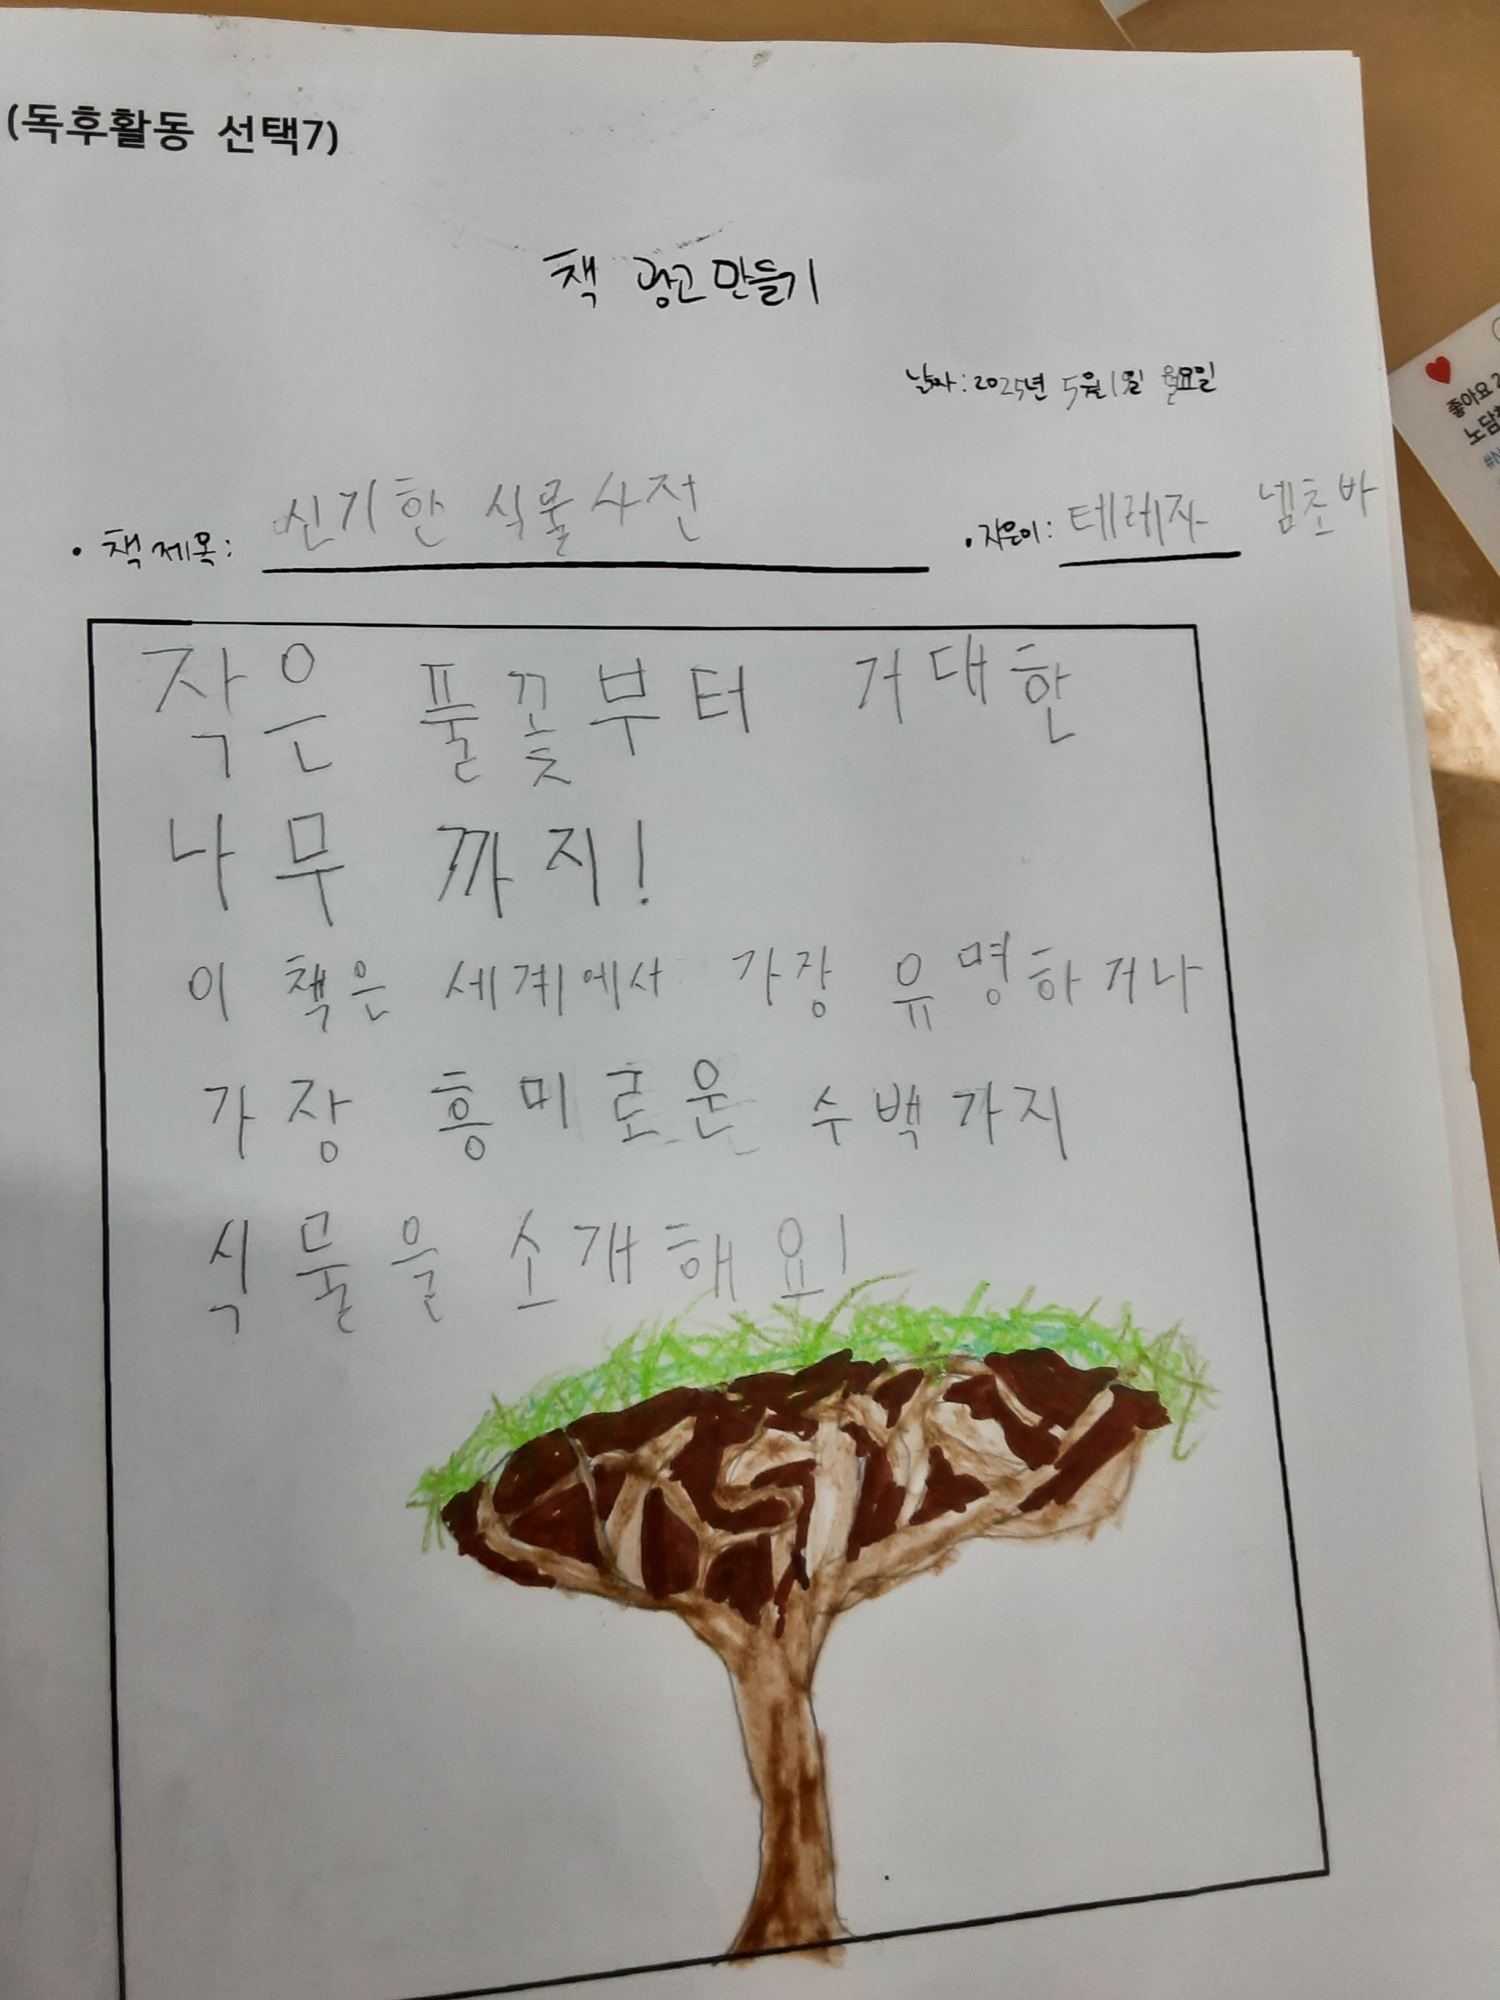 (독후활동 선택7)
책 광고 만들기
날짜: 2025년 5월 1일 월요일
• 책 제목: 신기한 식물사전 • 지은이: 테레자 넴초바
작은 풀꽃부터 거대한
나무 까지!
이 책은 세계에서 가장 유명하거나
가장 흥미로운 수백가지
식물을 소개해요!
좋아요 2
노담
#N